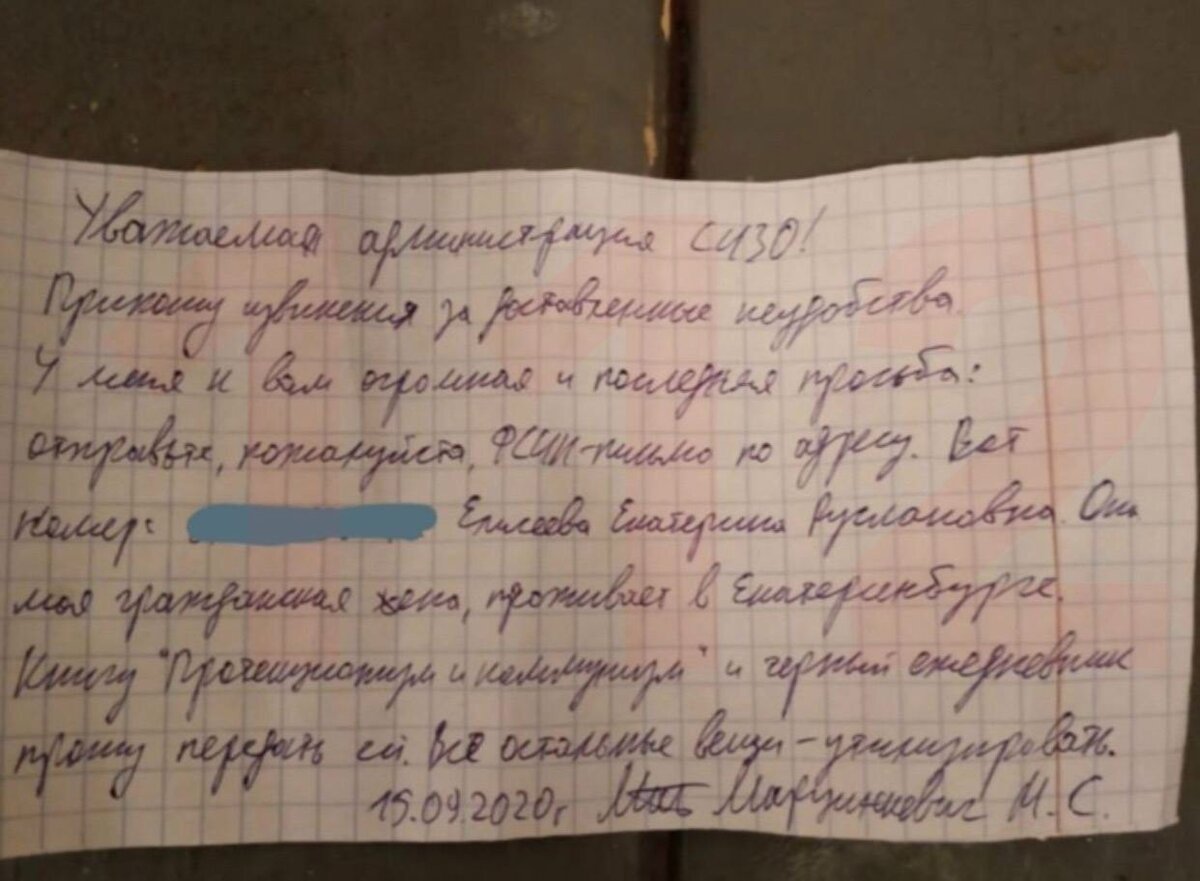 Уважаемая администрация СИЗО!
Приношу извинения за доставленные неудобства.
У меня к вам огромная и последняя просьба:
отправьте, пожалуйста, ФСИН-письмо по адресу. Вот
номер: Елисеева Екатерина Руслановна. Она
моя гражданская жена, проживает в Екатеринбурге.
Книгу "Протекционизм и коммунизм" и черный ежедневник
прошу передать ей. Всё остальные вещи - утилизировать.
15.09.2020г. Марцинкевич М.С.
112